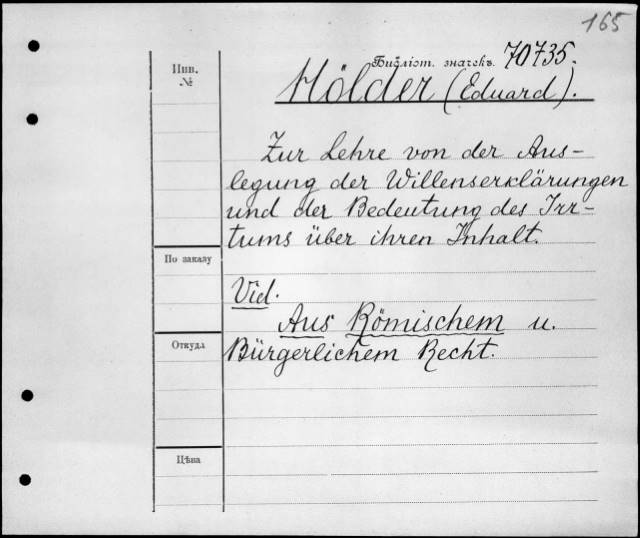 165
Библіот. значекъ 70735.
Инв.
№
Hölder (Eduard).
Zur Lehre von der Aus-
legung der Willenserklärungen
und der Bedeutung des Irr-
tums über ihren Inhalt.
По заказу
Vid.
Aus Römischem u.
Откуда
Bürgerlichem Recht.
Цѣна